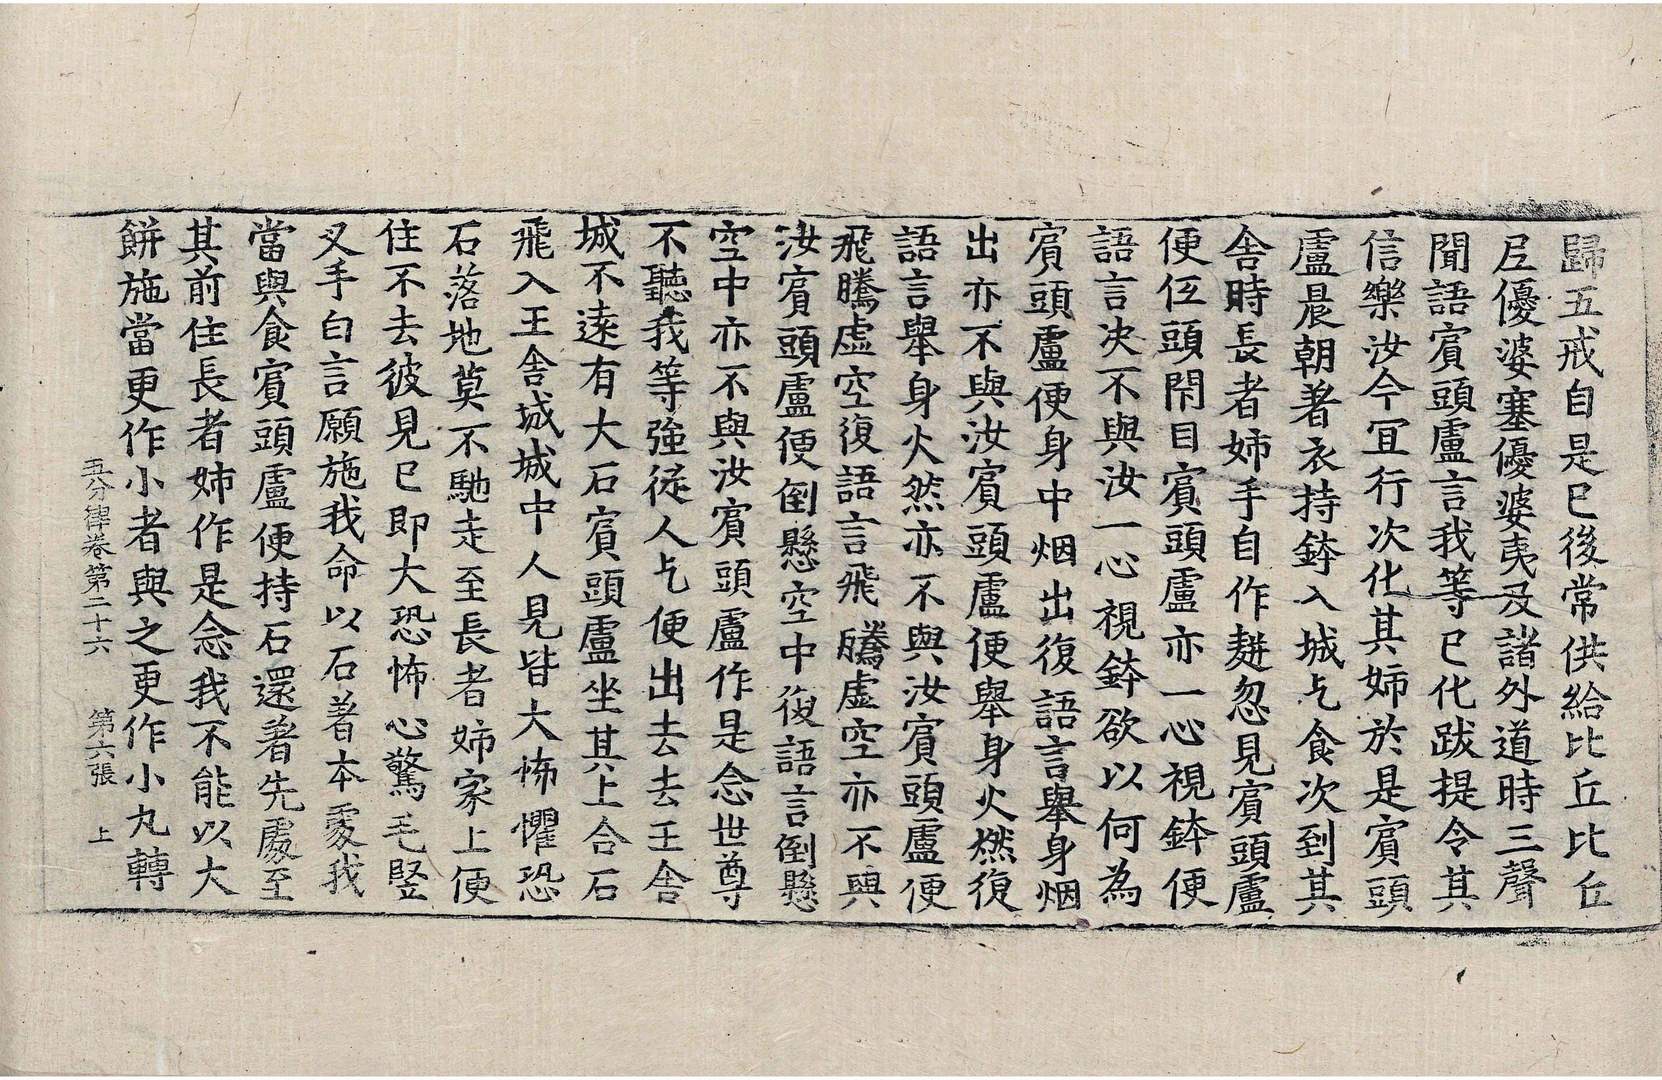 歸五戒自是已後常供給比丘比丘
尼優婆塞優婆夷及諸外道時三聲
聞語賓頭盧言我等已化跋提令其
信樂汝今冝行次化其姉於是賓頭
盧晨朝著衣持鉢入城乞食次到其
舎時長者姉手自作麨忽見賓頭盧
便伍頭閇目賓頭盧亦一心視鉢便
語言决不與汝一心視鉢欲以何為
賓頭盧便身中烟出復語言舉身烟
出亦不與汝賓頭盧便舉身火燃復
語言舉身火然亦不與汝賓頭盧便
飛騰虛空復語言飛騰虛空亦不與
汝賓頭盧便倒懸空中復語言倒懸
空中亦不與汝賓頭盧作是念世尊
不聽我等強從人乞便出去去王舎
城不遠有大石賓頭盧坐其上合石
飛入王舎城城中人見皆大怖懼恐
石落地莫不馳走至長者姉家上便
住不去彼見已即大恐怖心驚毛竪
叉手白言願施我命以石著本處我
當與食賓頭盧便持石還著先處至
其前住長者姉作是念我不能以大
餅施當更作小者與之更作小丸轉
五分律卷第二十六 第六張 上